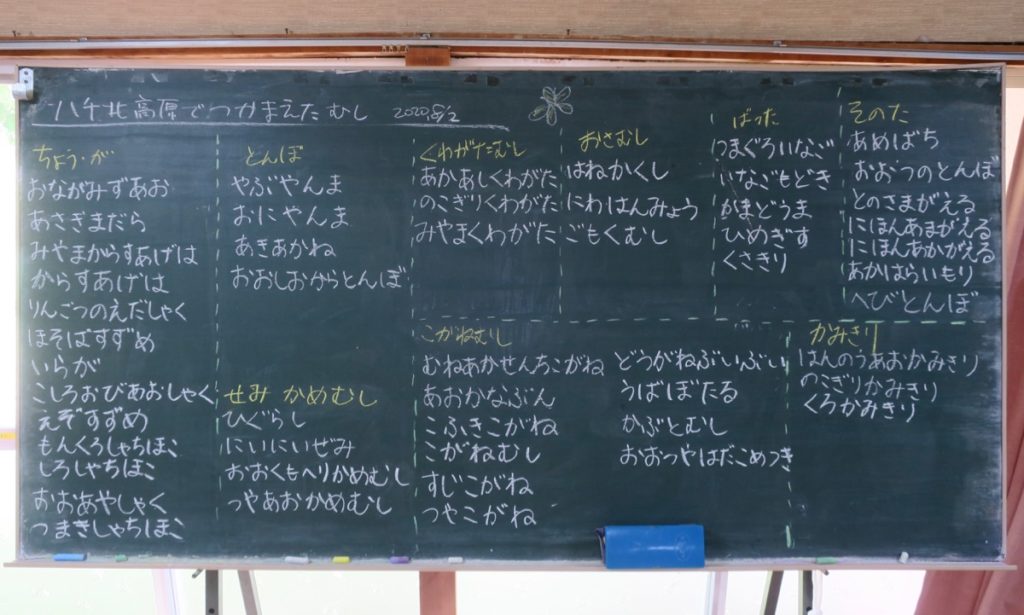 ハチ北高原でつかまえたむし 2020,8/2
ちょう・が
おながみずあお
あさぎまだら
みやまからすあげは
からすあげは
りんごつのえだしゃく
ほそばすずめ
いらが
こしろおびあおしゃく
えぞすずめ
もんくろしゃちほこ
しろしゃちほこ
おおあやしゃく
つまきしゃちほこ
とんぼ
やぶやんま
おにやんま
あきあかね
おおしおからとんぼ
せみ かめむし
ひぐらし
にいにいぜみ
おおくもへりかめむし
つやあおかめむし
くわがたむし
あかあしくわがた
のこぎりくわがた
みやまくわがた
おさむし
はねかくし
にわはんみょう
ごもくむし
ばった
つまぐろいなご
いなごもどき
かまどうま
ひめぎす
くさきり
そのた
あめばち
おおつのとんぼ
とのさまがえる
にほんあまがえる
にほんあかがえる
あかはらいもり
へびとんぼ
こがねむし
むねあかせんちこがね
あおかなぶん
こふきこがね
こがねむし
すじこがね
つやこがね
どうがねぶいぶい
うばぼたる
かぶとむし
おおつやはだこめつき
かみきり
はんのうあおかみきり
のこぎりかみきり
くろかみきり